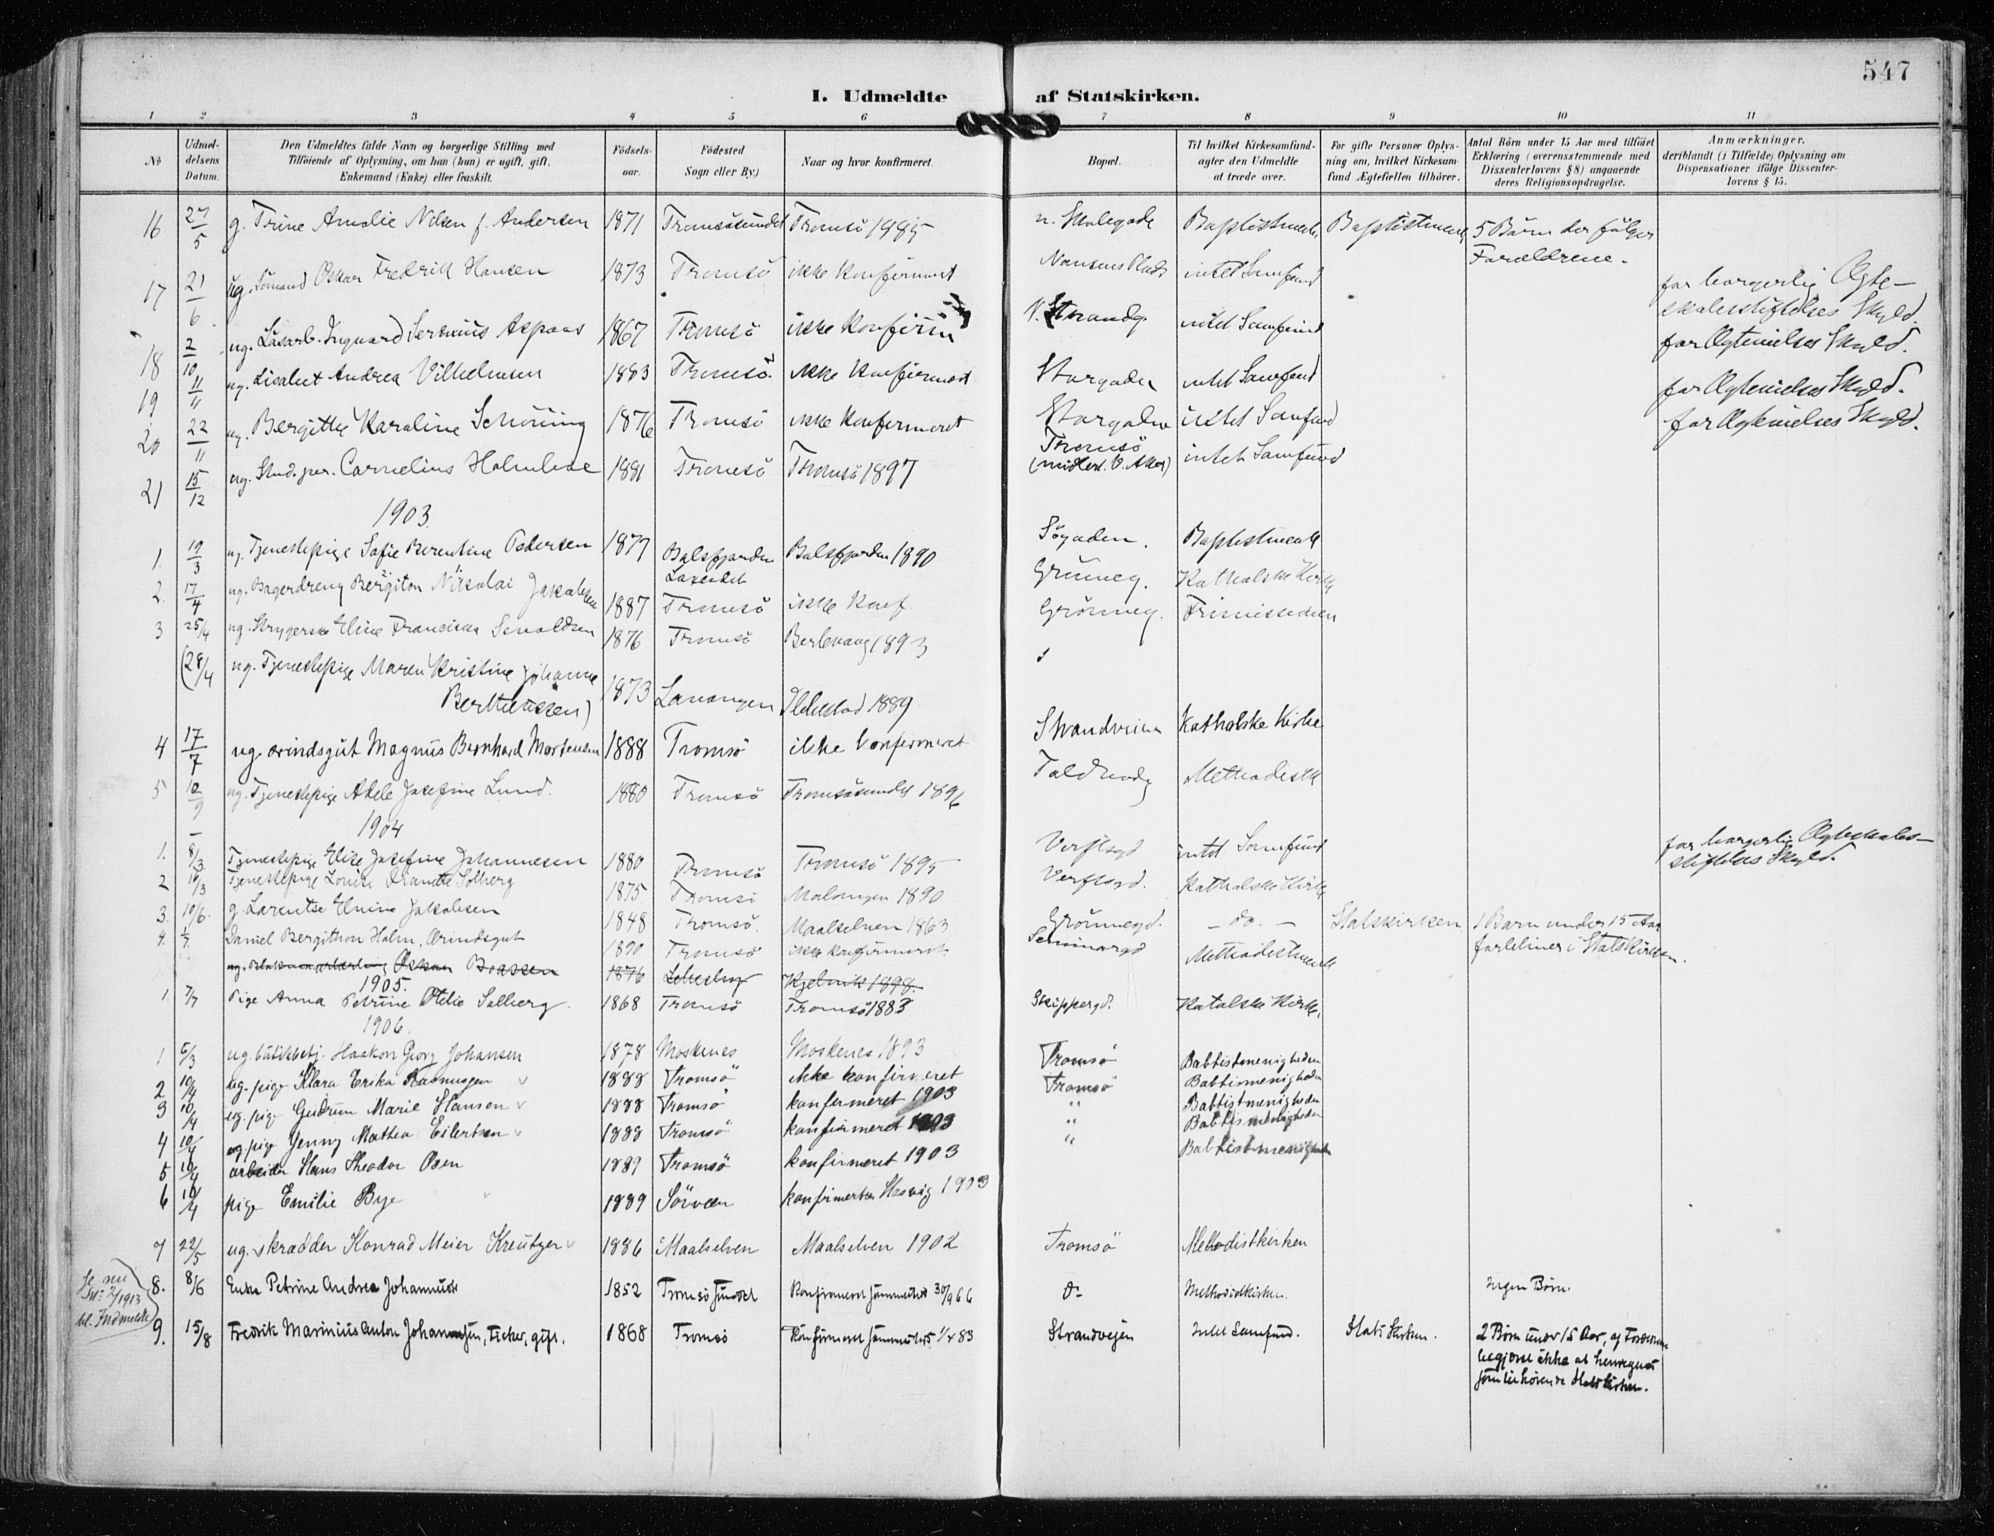 547
I. Udmeldte af Statskirken.
1 2 3 4 5 6 7 8 9 10 11
No Udmeldelsens Datum. Den Udmeldtes fulde Navn og borgerlige Stilling med Tilføiende af Oplysning, om han (hun) er ugift, gift, Enkemand (Enke) eller fraskilt. Fødselsaar. Fødested Sogn eller By.) Naar og hvor konfirmeret. Bopæl. Til hvilket Kirkesamfundagter den Udmeldte at træde over. For gifte Personer Oplysning om, hvilket Kirkesamfund Ægtefællen tilhører. Antal Børn under 15 Aar med tilføiet Erklæring (overensstemmende med Dissenterlovens § 8) angaaende deres Religionsopdragelse. Anmærkninger, deriblandt (i Tilfælde) Oplysning om Dispensationer ifølge Dissenterlovens § 15.
16 27/5 g. Trine Amalie Nilsen f. Andersen 1871 Tromsösundet Tromsö 1885 n. Skolegade Baptistmenh. Baptistmenh 5 Börn der fölger Forældrene.
17 21/6 ug. Sömand Oskar Fredrik Hansen 1873 Tromsö ikke konfirmeret Nansens Plads intet Samfund for borgerlig Ægteskabsstiftelses Skyld.
18 2/10 ug. Lösarb. Ingvard Aspaas 1867 Tromsö ikke konfirm N. Strandg. intet Samfund for Ægtevielses Skyld.
19 11/11 ug. Lisabet Andrea Vilhelmsen 1883 Tromsö ikke konfirmeret Storgaden intet Samfund for Ægtevielses Skyld.
20 22/11 ug. Bergitte Karoline Schöning 1876 Tromsö ikke konfirmeret Storgaden intet Samfund for Ægtevielses Skyld.
21 15/12 ug. Stud. jur. Cornelius Holmboe 1881 Tromsö Tromsö 1897 Tromsö (midlert. V. Aker) intet Samfund
1903.
1. 19/3 ug. Tjenestepige Sofie Berentine Pedersen 1877 Balsfjorden Balsfjorden 1890 Sögaden. Baptistmenh
2. 17/4 ug. Bagerdreng Bergiton Nikolai Jakobsen 1887 Tromsö ikke konf Grönneg. Katholske Kirke
3 25/4 ug. Strygerske Eline Francisca 1876 Tromsö Berlevaag 1893 Grönneg. Frimissionen
(28/4 ug. Tjenestepige Maren Kristine Johanne Bertheussen) 1873 Lavangen Ibbestad 1889
4 17/7 ug. ærindsgut Magnus Bernhard Mortensen 1888 Tromsö ikke konfirmeret Strandveien Katholske Kirke
5 10/9 ug. Tjenestepige Adele Josefine Lund. 1880 Tromsö Tromsösundet 1896 Toldbodg Methodistk
1904
1. 8/3 Tjenestepige Elise Josefine Johannesen 1880 Tromsö Tromsö 1895 Verftsgd intet Samfund for borgerlig Ægteskabsstiftelses Skyld.
2 10/3 Tjenestepige Lovise Solberg 1875 Tromsö Malangen 1890 Verftsgd. Katholske Kirke
3. 10/6. g. Larentse Jakobsen 1848 Tromsö. Maalselven 1863 Grönnegd. – do. – Statskirken 1 Barn under 15 Aar forbliver i Statskirken.
4. Daniel Bergithon Holm, Ærindsgut 1890 Tromsö ikke konfirmeret. Seminargd Methodistmenh
Oskar 1876 Lebesby Kjelvik 1898.
1905.
1. 7/7 Pige Anna Petrine Otelie Solberg. 1868 Tromsö Tromsö 1883 Skippergd. Katolske Kirke.
1906.
1 6/3 ug. butikbetj. Haakon Georg Johansen 1878 Moskenes Moskenes 1893 Tromsö Babtistmenigheden
2 10/4 ug. pige Klara Erika Rasmussen 1888 Tromsö ikke konfirmeret Tromsö Babtismenigheden
3 10/4 ug. pige Gudrun Marie Hansen 1888 Tromsö konfirmeret 1903 " Babtistmenigheden
4 10/4 ug. pige Jenny Mathea Eilertsen 1888 Tromsö konfirmeret 1903 " Babtismenigheden
5 10/4 arbeider Hans Theodor Olsen 1889 Tromsö konfirmeret 1903 " Babtistmenigheden
6 10/4 pige Emilie Bye 1889 Sörvær konfirmert Hasvig 1903
7 22/5 ug. skrædder Konrad Meier Kreutzer 1886 Maalselven Maalselven 1902 Tromsö Methodistkirken
Se nu No 2/1913 bl. Indmeldte
8. 8/6 Enke Petrine Andrea 1852 Tromsösundet Konfirmeret sammesteds 30/9 66 do Methodistkirken. Ingen Børn.
9. 15/8 Fredrik Marinius Anton Johannesen, Fisker, gift. 1868 Tromsö Konfirmeret sammesteds 1/4 83 Strandveien Intet Samfund. Stats Kirken. 2 Børn under 15 Aar, og Forældrene begjærer ikke at henregnes som tilhørende Statskirken.